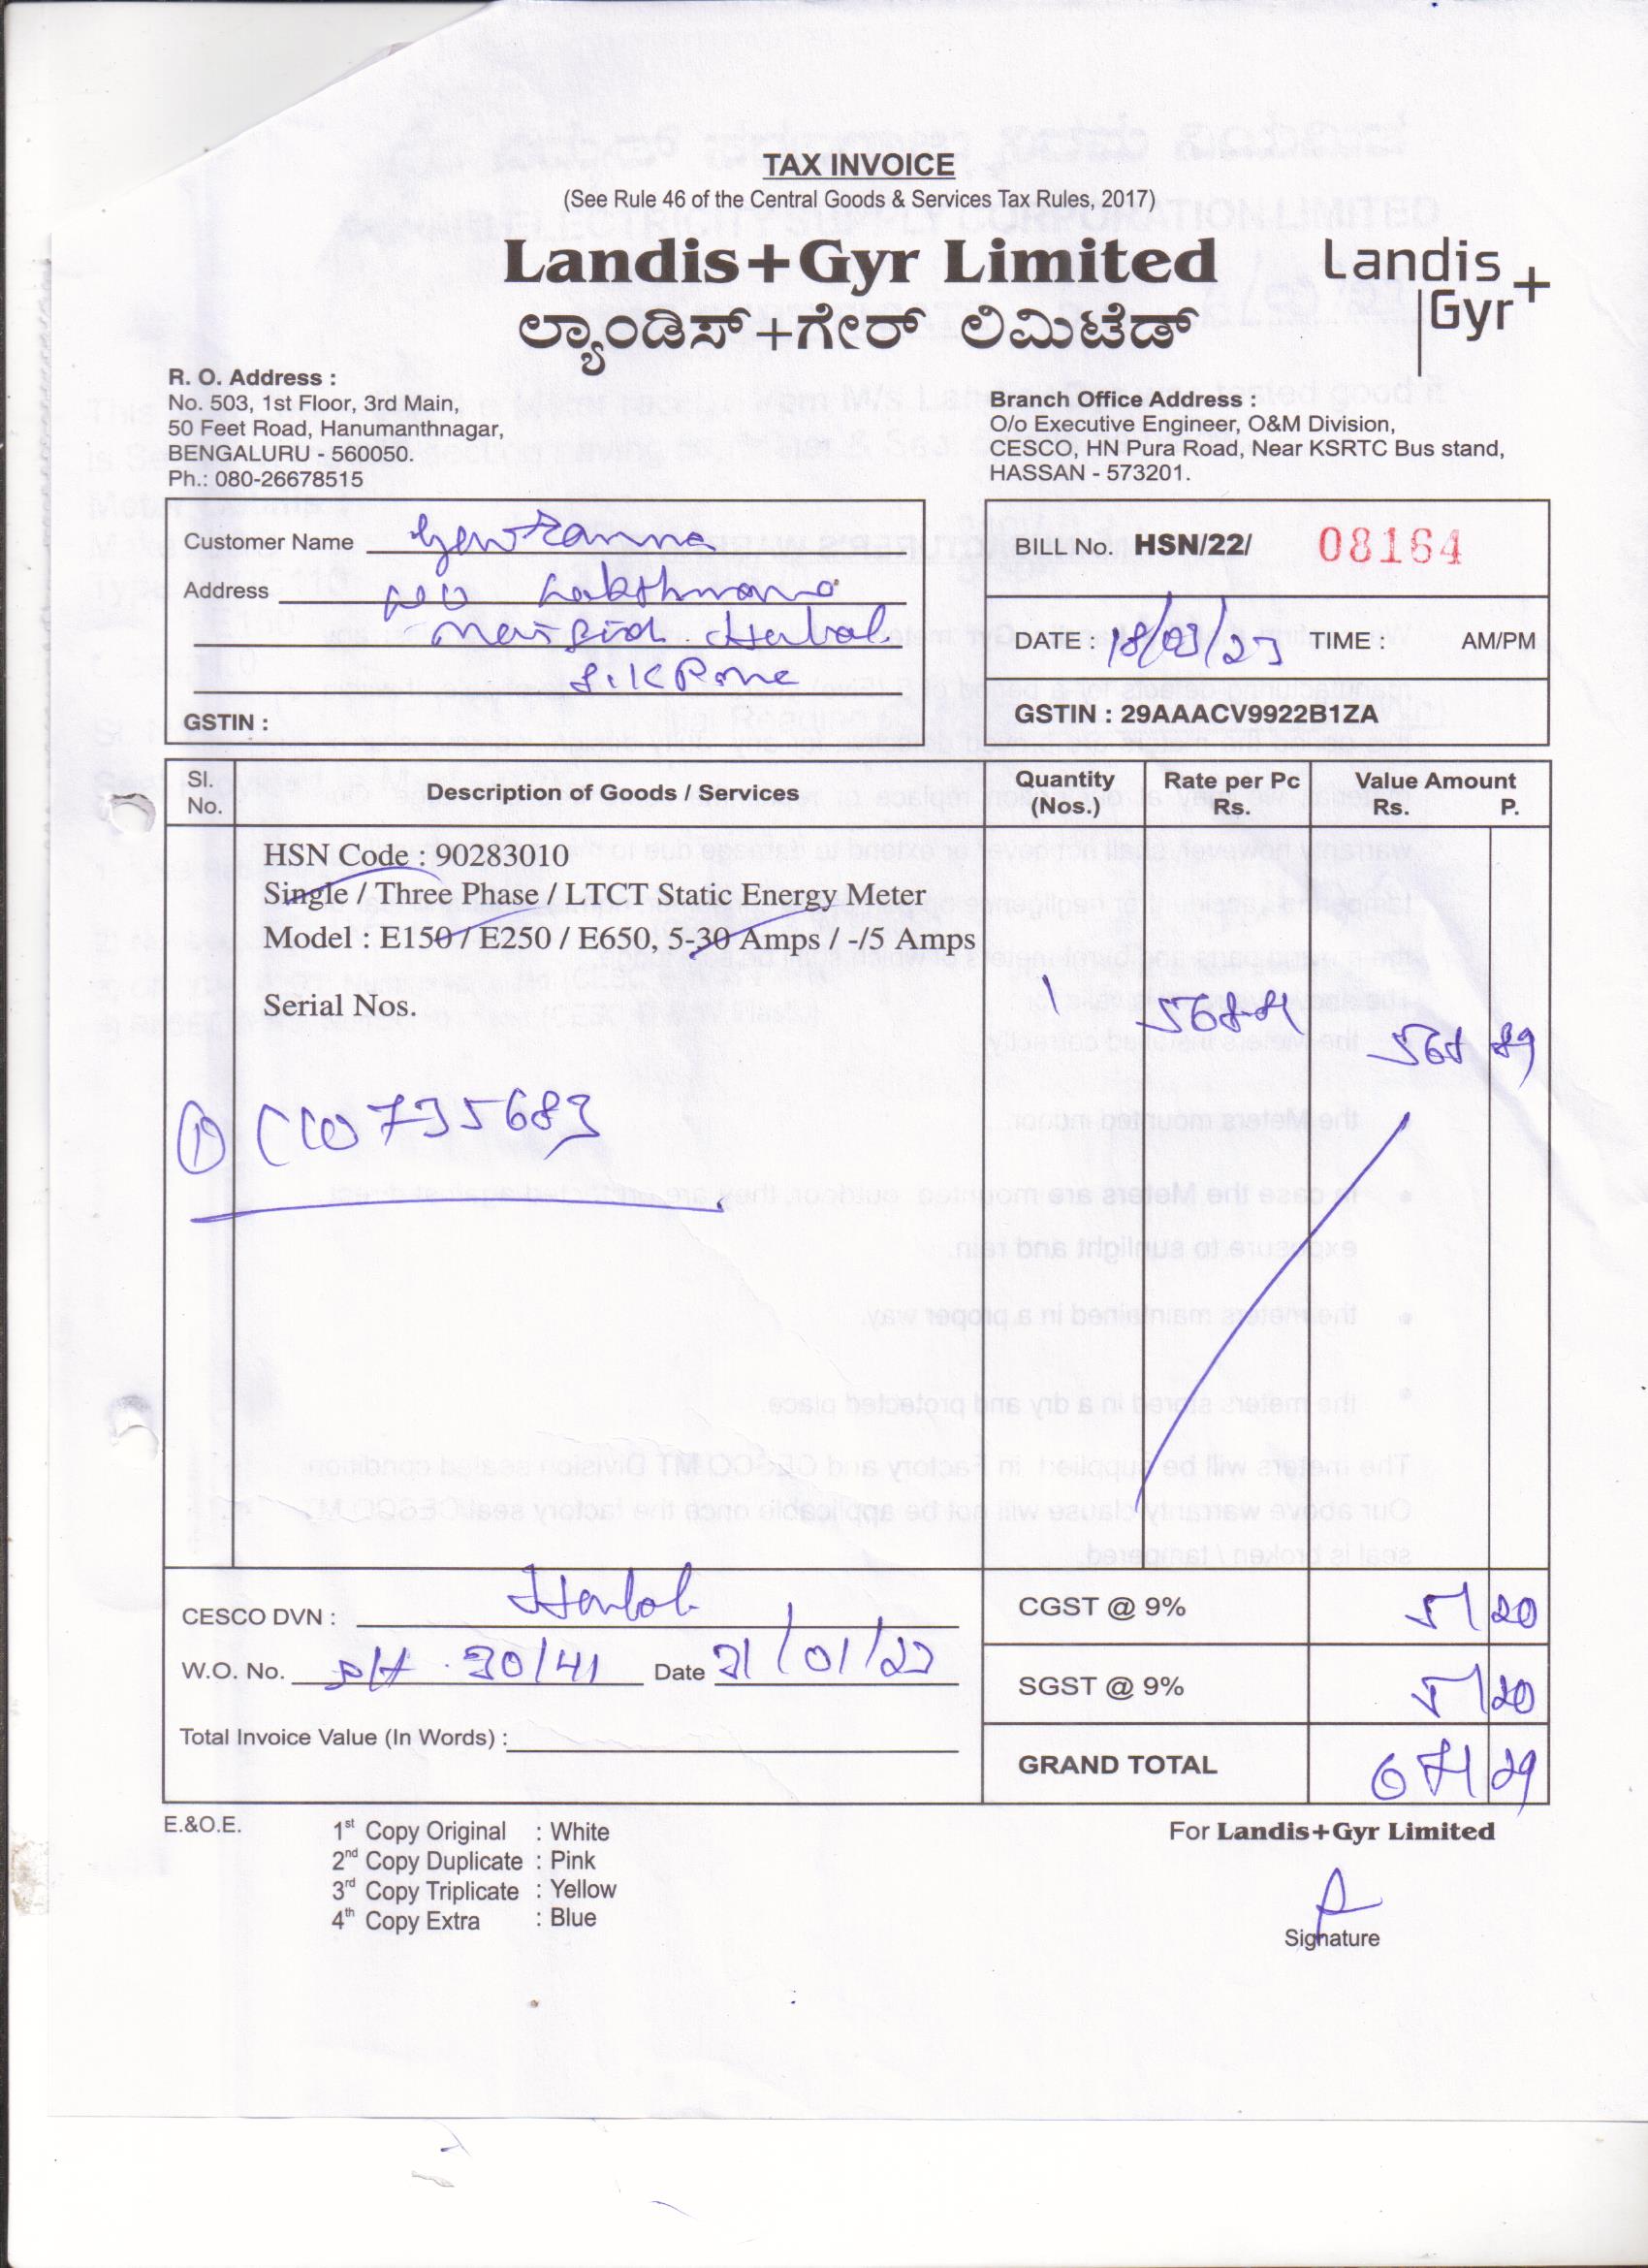 TAX INVOICE
(See Rule 46 of the Central Goods & Services Tax Rules, 2017)
Landis+Gyr Limited
ಲ್ಯಾಂಡಿಸ್+ಗೇರ್ ಲಿಮಿಟೆಡ್
Landis
Gyr+
R. O. Address :
No. 503, 1st Floor, 3rd Main,
50 Feet Road, Hanumanthnagar,
BENGALURU - 560050.
Ph.: 080-26678515
Branch Office Address :
O/o Executive Engineer, O&M Division,
CESCO, HN Pura Road, Near KSRTC Bus stand,
HASSAN - 573201.
Customer Name
Address
GSTIN :
BILL No. HSN/22/ 08164
DATE : 18/03/23 TIME : AM/PM
GSTIN : 29AAACV9922B1ZA
Sl. No. Description of Goods / Services Quantity (Nos.) Rate per Pc Rs. Value Amount Rs. P.
HSN Code : 90283010
Single / Three Phase / LTCT Static Energy Meter
Model : E150 / E250 / E650, 5-30 Amps / -/5 Amps
Serial Nos. 1 568 89
735683
CESCO DVN :
W.O. No. 30/41 Date 21/01/23
Total Invoice Value (In Words) :
CGST @ 9% 51 20
SGST @ 9% 51 20
GRAND TOTAL 671 29
E.&O.E.
1st Copy Original : White
2nd Copy Duplicate : Pink
3rd Copy Triplicate : Yellow
4th Copy Extra : Blue
For Landis+Gyr Limited
Signature